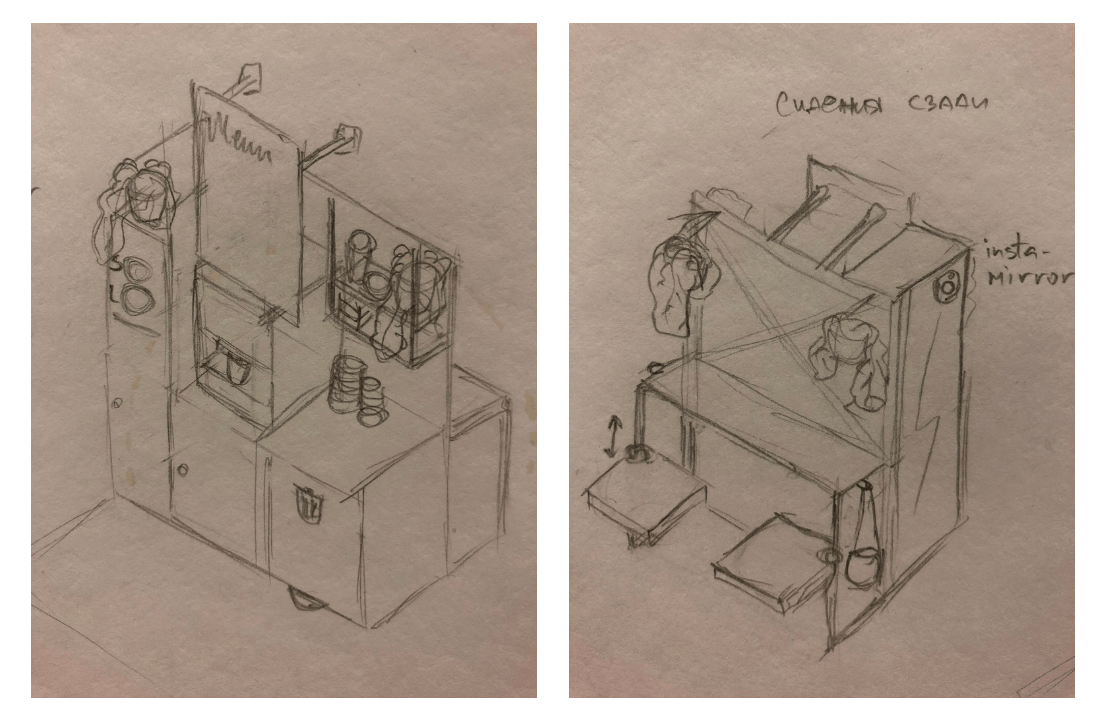 Menu
S
L
Сиденья сзади
insta-
mirror